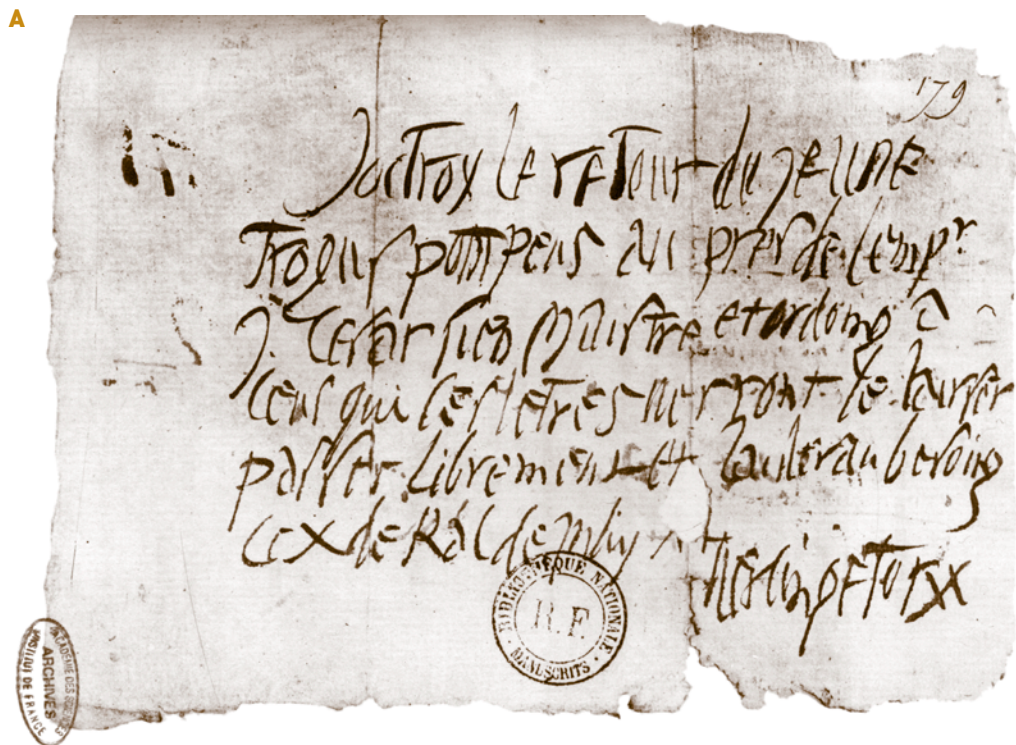 A
179
Joctroy le retour du jeune
Trogus pompeus au pres de lempr
J. Cesar sien Maistre et ordong a
ceus qui ces letres verront le laisser
passer librement et laider au besoing
ce x de Kal de may
Vercingetorix
BIBLIOTHEQUE NATIONALE
R.F.
MANUSCRITS
ACADEMIE DES
ARCHIVES
INSTITUT DE FRANCE